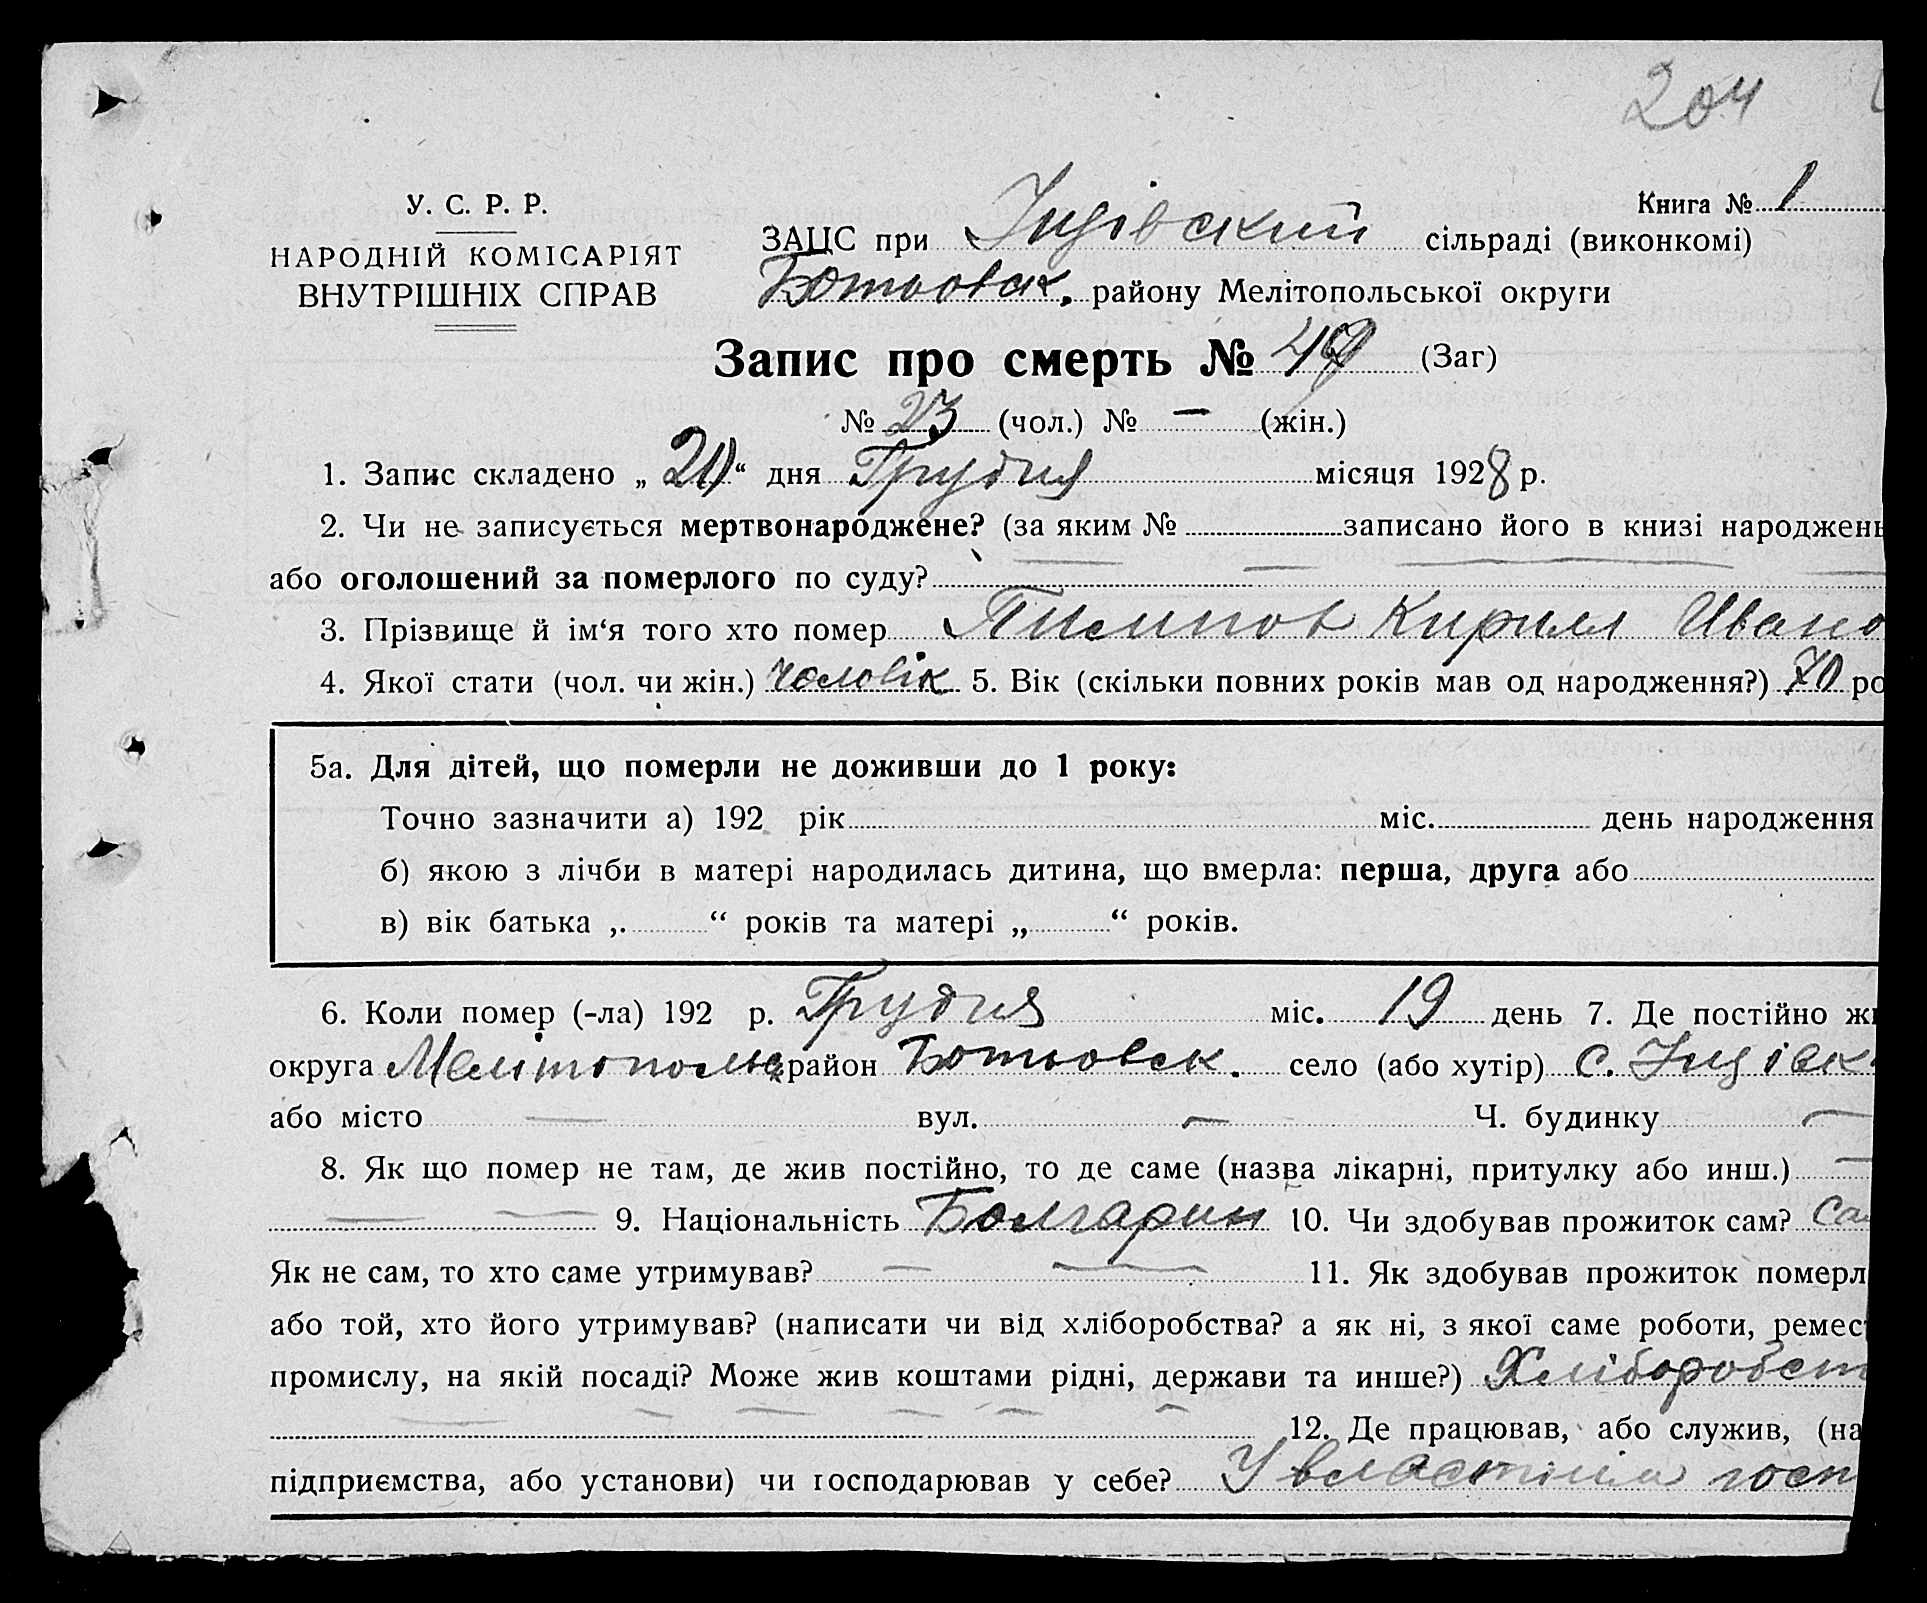 204
У. С. Р. Р.
НАРОДНІЙ КОМІСАРІЯТ
ВНУТРІШНІХ СПРАВ
Книга № 1
ЗАЦС при Інзівский сільраді (виконкомі)
Ботьовск. району Мелітопольської округи
Запис про смерть № (Заг)
№ 23 (чол.) № — (жін.)
1. Запис складено „ “ дня Грудня місяця 1928 р.
2. Чи не записується мертвонароджене? (за яким № записано його в книзі народжень
або оголошений за померлого по суду?
3. Прізвище й ім‘я того хто помер Пилипов Кирилл Ивано
4. Якої стати (чол. чи жін.) Чоловік 5. Вік (скільки повних років мав од народження?) 70 ро
5а. Для дітей, що померли не доживши до 1 року:
Точно зазначити а) 192 рік міс. день народження
б) якою з лічби в матері народилась дитина, що вмерла: перша, друга або
в) вік батька „ “ років та матері „ “ років.
6. Коли помер (-ла) 192 р. Грудня міс. 19 день 7. Де постійно жи
округа Мелітопольс район Ботьовск. село (або хутір) с. Інзівк
або місто — вул. — Ч. будинку —
8. Як що помер не там, де жив постійно, то де саме (назва лікарні, притулку або инш.) —
— — 9. Національність Болгарин 10. Чи здобував прожиток сам? Сам
Як не сам, то хто саме утримував? — — 11. Як здобував прожиток померл
або той, хто його утримував? (написати чи від хліборобства? а як ні, з якої саме роботи, ремес
промислу, на якій посаді? Може жив коштами рідні, держави та инше?) Хліборобст
— — — — — — 12. Де працював, або служив, (на
підприємства, або установи) чи господарював у себе? У властнім госп